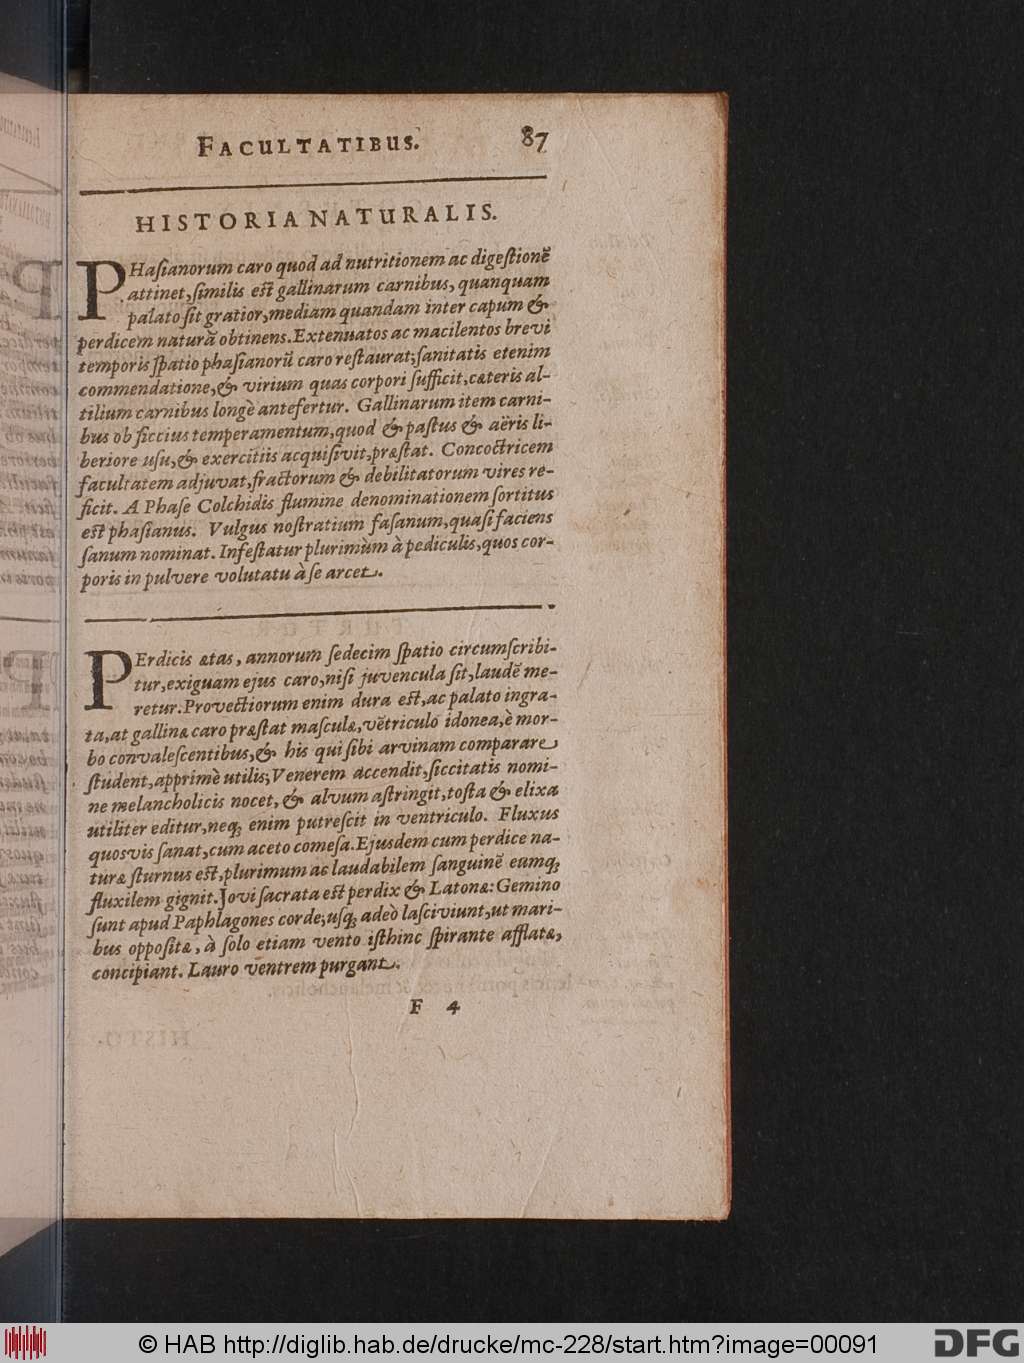 FACULTATIBUS. 87
HISTORIA NATURALIS.
PHaſianorum caro quod ad nutritionem ac digeſtionẽ
attinet, ſimilis eſt gallinarum carnibus, quanquam
palato ſit gratior, mediam quandam inter capum &
perdicem naturã obtinens. Extenuatos ac macilentos brevi
temporis ſpatio phaſianorũ caro reſtaurat; ſanitatis etenim
commendatione, & virium quas corpori ſufficit, cæteris al-
tilium carnibus longè antefertur. Gallinarum item carni-
bus ob ſiccius temperamentum, quod & paſtus & aëris li-
beriore uſu, & exercitiis acquiſivit, præſtat. Concoctricem
facultatem adjuvat, fractorum & debilitatorum vires re-
ficit. A Phaſe Colchidis flumine denominationem ſortitus
eſt phaſianus. Vulgus noſtratium faſanum, quaſi faciens
ſanum nominat. Infeſtatur plurimùm à pediculis, quos cor-
poris in pulvere volutatu à ſe arcet.
PErdicis ætas, annorum ſedecim ſpatio circumſcribi-
tur, exiguam ejus caro, niſi juvencula ſit, laudẽ me-
retur. Provectiorum enim dura eſt, ac palato ingra-
ta, at gallinæ caro præſtat maſculæ, vẽtriculo idonea, è mor-
bo convaleſcentibus, & his qui ſibi arvinam comparare
ſtudent, apprimè utilis; Venerem accendit, ſiccitatis nomi-
ne melancholicis nocet, & alvum aſtringit, toſta & elixa
utiliter editur, neq; enim putreſcit in ventriculo. Fluxus
quosvis ſanat, cum aceto comeſa. Ejusdem cum perdice na-
turæ ſturnus eſt, plurimum ac laudabilem ſanguinẽ eumq;
fluxilem gignit. Jovi ſacrata eſt perdix & Latonæ: Gemino
ſunt apud Paphlagones corde; uſq; adeò laſciviunt, ut mari-
bus oppoſitæ, à ſolo etiam vento iſthinc ſpirante afflatæ,
concipiant. Lauro ventrem purgant.
F 4
© HAB http://diglib.hab.de/drucke/mc-228/start.htm?image=00091
DFG